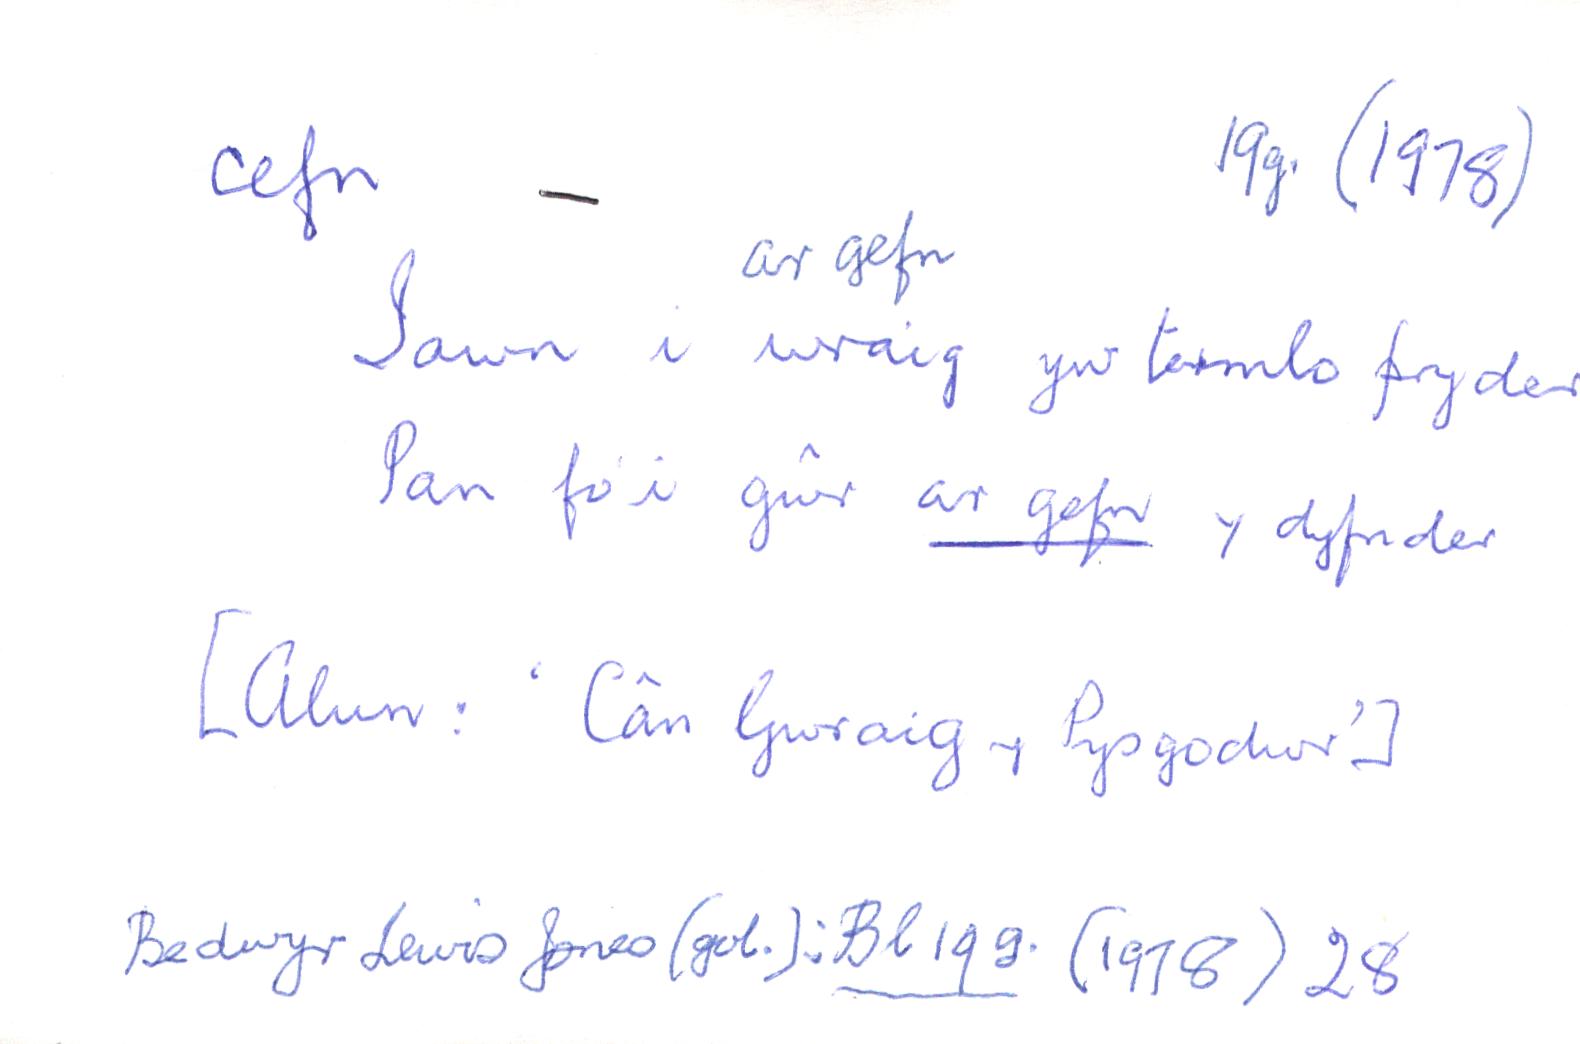 cefn — 19g. (1978)
ar gefn
Iawn i wraig yw teimlo pryder
Pan fo'i gŵr ar gefn y dyfnder
[Alun: 'Cân Gwraig y Pysgodwr']
Bedwyr Lewis Jones (gol.): Bl 19g. (1978) 28